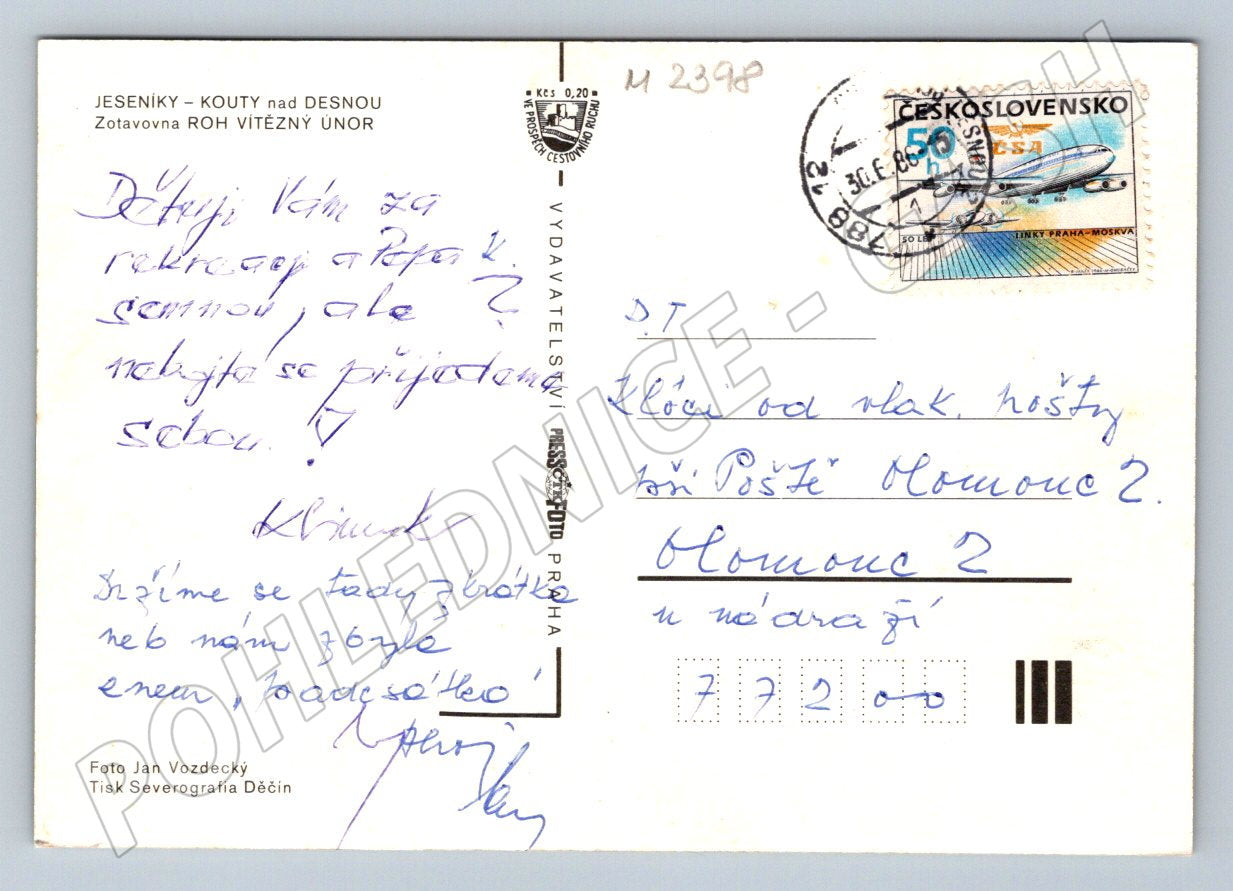 JESENÍKY – KOUTY nad DESNOU
Zotavovna ROH VÍTĚZNÝ ÚNOR
Děkuji Vám za
rekreaci a Pepa k.
semnou, ale ?
nebojte se přijedeme
sebou. !
Držíme se tady zkrátka
neb nám zbylo
enem
Ahoj
Foto Jan Vozdecký
Tisk Severografia Děčín
Kčs 0,20
VE PROSPĚCH CESTOVNÍHO RUCHU
VYDAVATELSTVÍ PRESSFOTO PRAHA
ČTK
M 2398
ČESKOSLOVENSKO
50 h
ČSA
50 LET LINKY PRAHA–MOSKVA
30.6.86
788
D.T
od vlak. pošty
při Poště Olomouc 2.
Olomouc 2
u nádraží
772 00
POHLEDNICE -